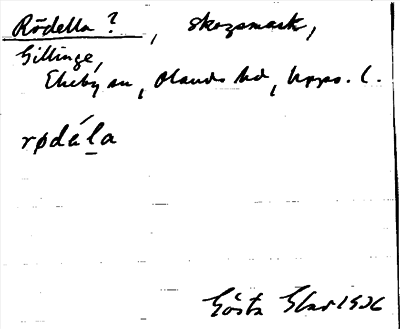 Rödella ?, skogsmark,
Gillinge,
Ekeby sn, Olands hd, Upps. l.
rødála
Gösta